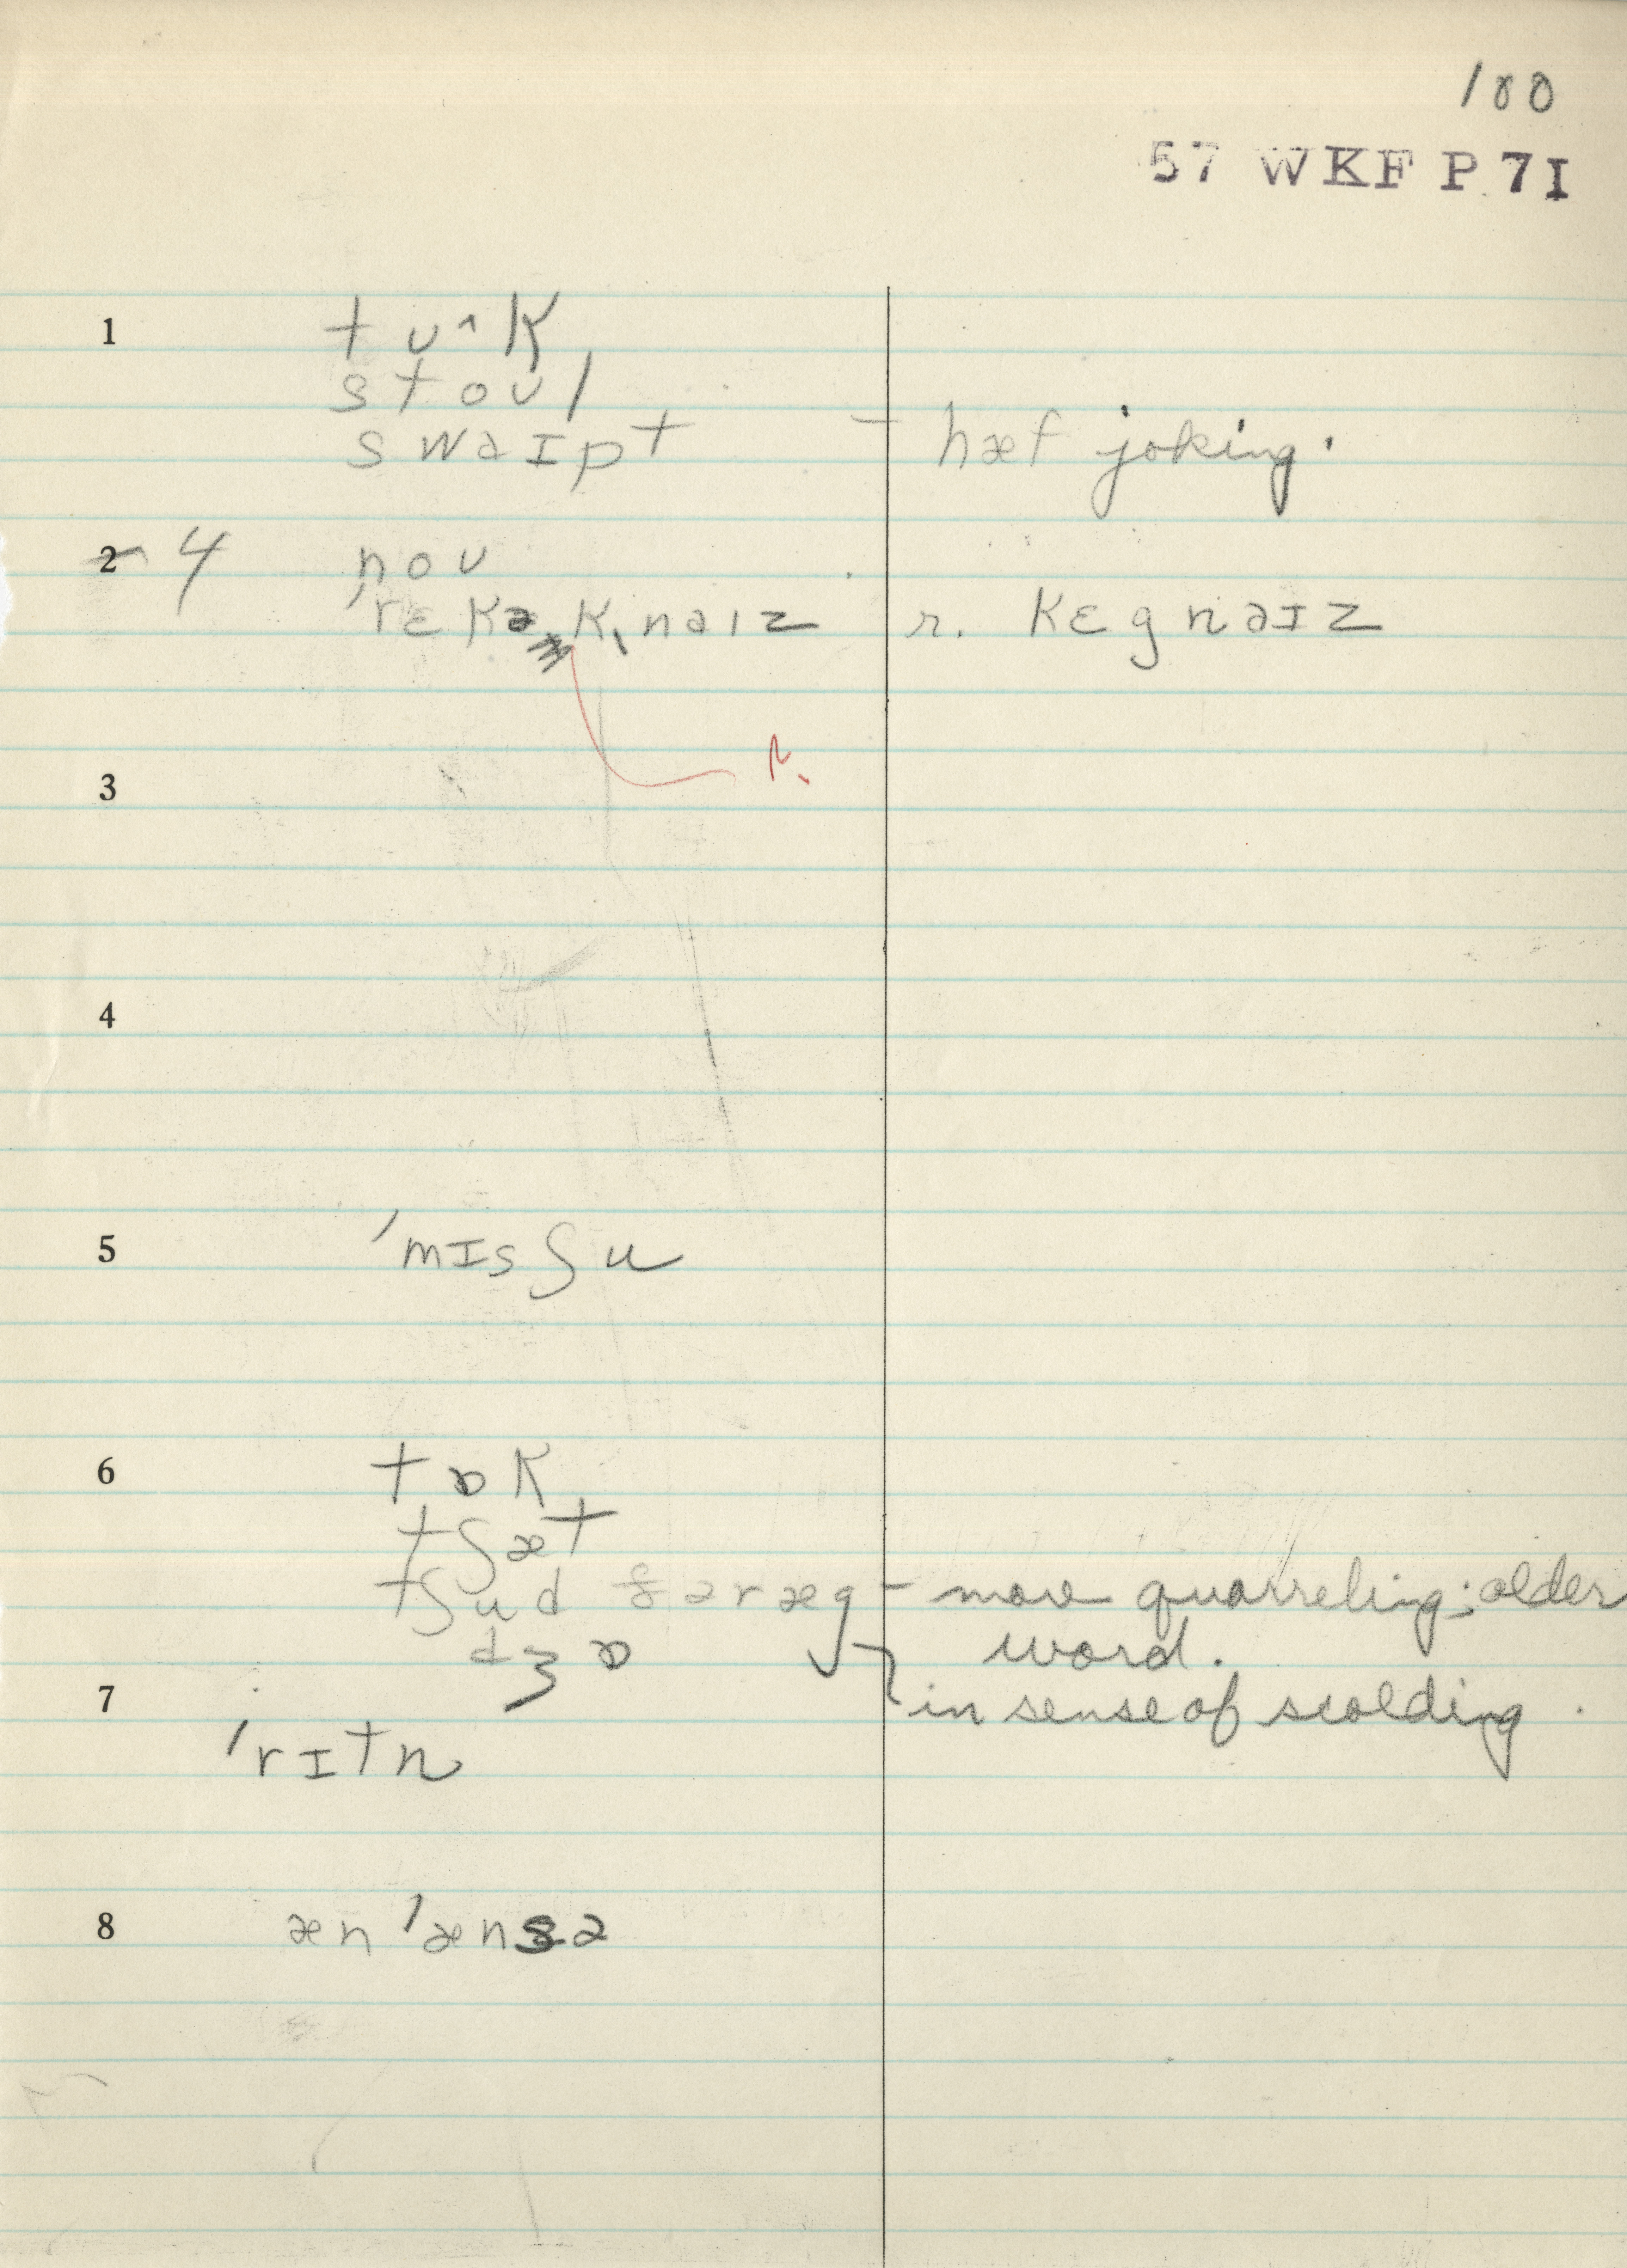 100
57 WKF P 71
1 tʊ^k
stoʊl
swaɪpt – hæf joking.
2 4 noʊ
'rɛkəkˌnaɪz r. kɛgnaɪz
r.
3
4
5 'mɪsʃu
6 tɒk
tʃæt
tʃud ʃəræg – more quarreling; older
dʒɒ word.
7 in sense of scolding
'rɪtn
8 æn 'ænsə